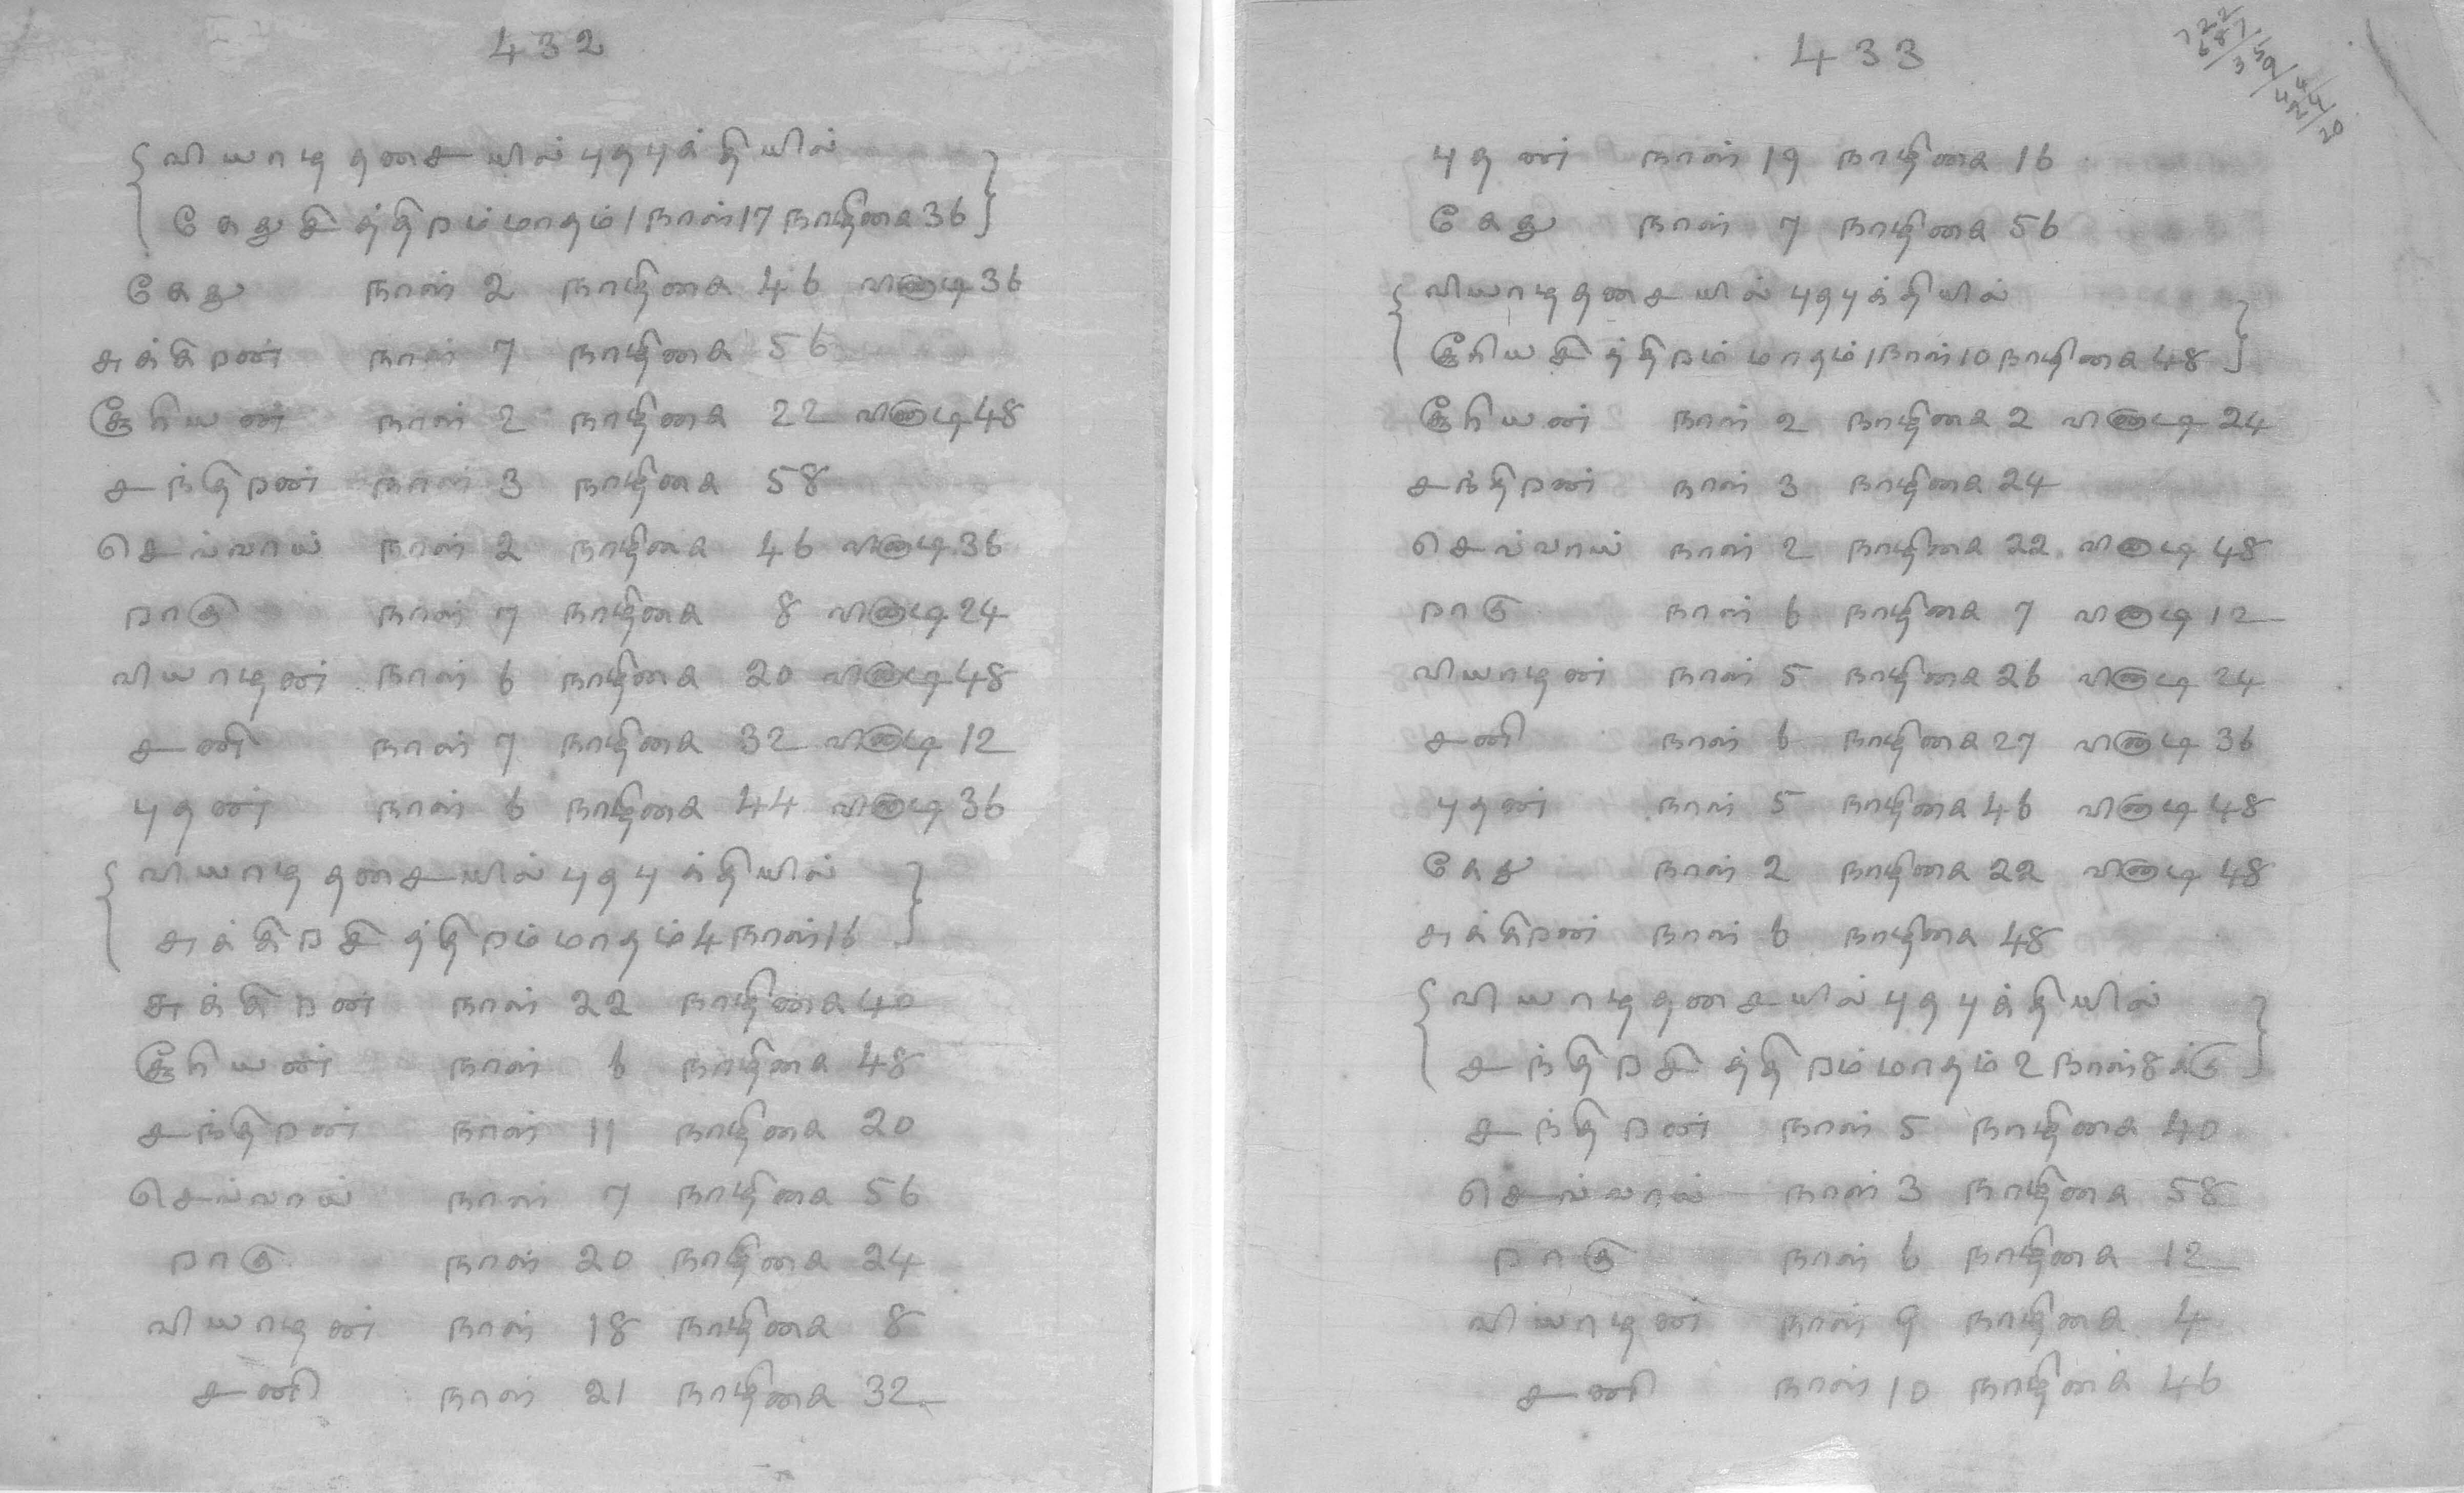 432
{ வியாழ தசையில் புதபுக்தியில் }
{ கேது சித்திறம் மாதம் 1 நாள் 17 நாழிகை 36 }
கேது நாள் 2 நாழிகை 46 வினாடி 36
சுக்கிறன் நாள் 7 நாழிகை 56
சூரியன் நாள் 2 நாழிகை 22 வினாடி 48
சந்திறன் நாள் 3 நாழிகை 58
செவ்வாய் நாள் 2 நாழிகை 46 வினாடி 36
றாகு நாள் 7 நாழிகை 8 வினாடி 24
வியாழன் நாள் 6 நாழிகை 20 வினாடி 48
சனி நாள் 7 நாழிகை 32 வினாடி 12
புதன் நாள் 6 நாழிகை 44 வினாடி 36
{ வியாழ தசையில் புதபுக்தியில் }
{ சுக்கிற சித்திறம் மாதம் 4 நாள் 16 }
சுக்கிறன் நாள் 22 நாழிகை 40
சூரியன் நாள் 6 நாழிகை 48
சந்திறன் நாள் 11 நாழிகை 20
செவ்வாய் நாள் 7 நாழிகை 56
றாகு நாள் 20 நாழிகை 24
வியாழன் நாள் 18 நாழிகை 8
சனி நாள் 21 நாழிகை 32
433
புதன் நாள் 19 நாழிகை 16
கேது நாள் 7 நாழிகை 56
{ வியாழ தசையில் புதபுக்தியில் }
{ சூரிய சித்திறம் மாதம் 1 நாள் 10 நாழிகை 48 }
சூரியன் நாள் 2 நாழிகை 2 வினாடி 24
சந்திறன் நாள் 3 நாழிகை 24
செவ்வாய் நாள் 2 நாழிகை 22 வினாடி 48
றாகு நாள் 6 நாழிகை 7 வினாடி 12
வியாழன் நாள் 5 நாழிகை 26 வினாடி 24
சனி நாள் 6 நாழிகை 27 வினாடி 36
புதன் நாள் 5 நாழிகை 46 வினாடி 48
கேது நாள் 2 நாழிகை 22 வினாடி 48
சுக்கிறன் நாள் 6 நாழிகை 48
{ வியாழ தசையில் புதபுக்தியில் }
{ சந்திற சித்திறம் மாதம் 2 நாள் 8க்கு }
சந்திறன் நாள் 5 நாழிகை 40
செவ்வாய் நாள் 3 நாழிகை 58
றாகு நாள் 6 நாழிகை 12
வியாழன் நாள் 9 நாழிகை 4
சனி நாள் 10 நாழிகை 46